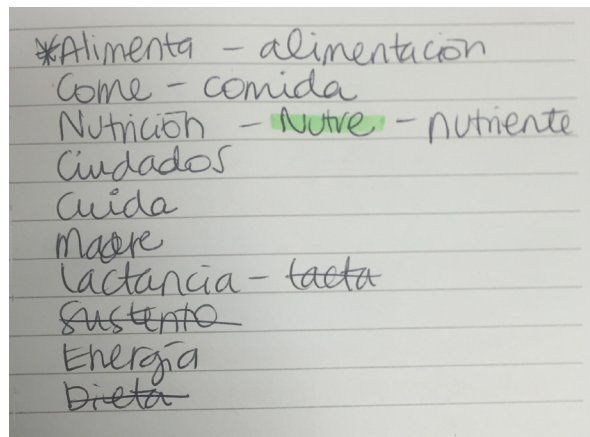 *Alimenta - alimentación
Come - comida
Nutrición - Nutre - nutriente
Ciudados
Cuida
Madre
Lactancia - lacta
Sustento
Energía
Dieta